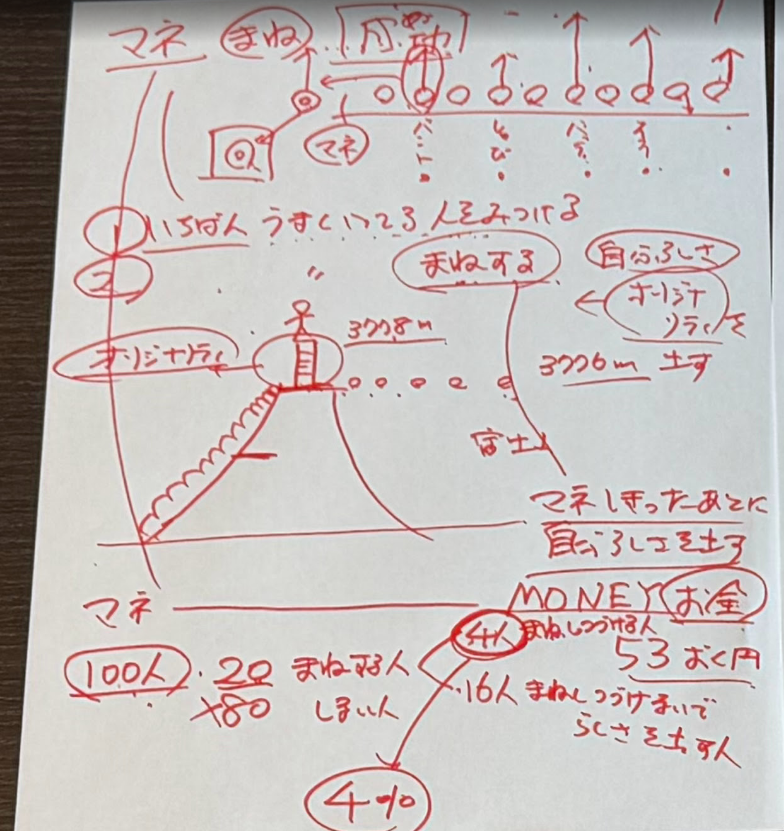 マネ まね 成功
マネ
① いちばん うまくいってる人をみつける
② 〃 まねする
自分らしさ
オリジナリティを
3776m 出す
オリジナリティ
3778m
富士山
マネしきったあとに
自分らしさを出す
マネ MONEY お金
4人 まねしつづける人
53おく円
100人 20 まねする人
×80 しない人
16人 まねしつづけないで
らしさを出す人
4%